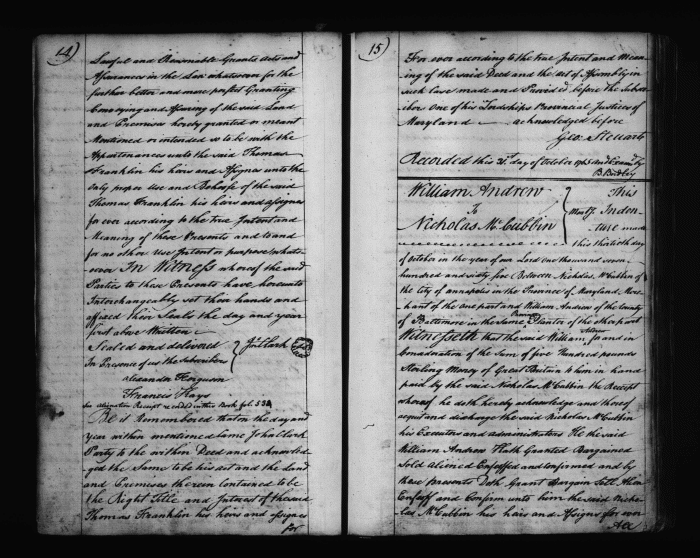 14)
Lawful and Reasonable Grants Acts and
Assurances in the Law whatsoever for the
further better and more perfect Granting
Conveying and Assuring of the said Land
and Premises hereby granted or meant
Mentioned or intended so to be with the
Appurtenances unto the said Thomas
Franklin his heirs and Assigns unto the
Only proper Use and Behoofe of the said
Thomas Franklin his heirs and assignes
for ever according to the True Intent and
Meaning of these Presents and to and
for no other Use Intent or purpose whats-
oever In Witness whereof the said
Parties to these Presents have hereunto
Interchangeably set their hands and
affixed their Seals the day and year
first above Written
Sealed and delivered } Jno. Clark
In Presence of us the Subscribers
Alexander Ferguson
Francis Hays
See alienation Receipt recorded in this Book fol. 538
Be it remembered that on the day and
year within mentioned came John Clark
Party to the within Deed and acknowled-
ged the Same to be his act and the Land
and Premises therein contained to be
the Right Title and Interest of the said
Thomas Franklin his heirs and assignes
for
15)
For ever according to the true Intent and Mean-
ing of the said Deed and the Act of Assembly in
such Case made and Provided before the Subscri-
ber One of his Lordships Provincial Justices of
Maryland acknowledged before
Geo: Steuart
Recorded this 31st day of October 1765 and Exam'd by
B Ridley
William Andrew } This
To Mortg. Inden-
Nicholas McCubbin ture made
this thirtieth day
of October in the year of our Lord One thousand seven
hundred and sixty five Between Nicholas McCubbin of
the City of annapolis in the Province of Maryland Merc-
hant of the one part and William Andrew of the County
of Baltimore in the same Province Planter of the other part
Witnesseth that the said William for and in
Consideration of the Sum of five hundred pounds
Sterling Money of Great Britain to him in hand
paid by the said Nicholas McCubbin the Receipt
whereof he doth hereby acknowledge and thereof
acquit and discharge the said Nicholas McCubbin
his Executors and administrators He the said
William Andrew Hath Granted Bargained
Sold aliened Enfeoffed and Confirmed and by
these Presents Doth Grant Bargain Sell Alien
Enfeoff and Confirm unto him the said Nicho-
las McCubbin his heirs and Assigns for ever
All